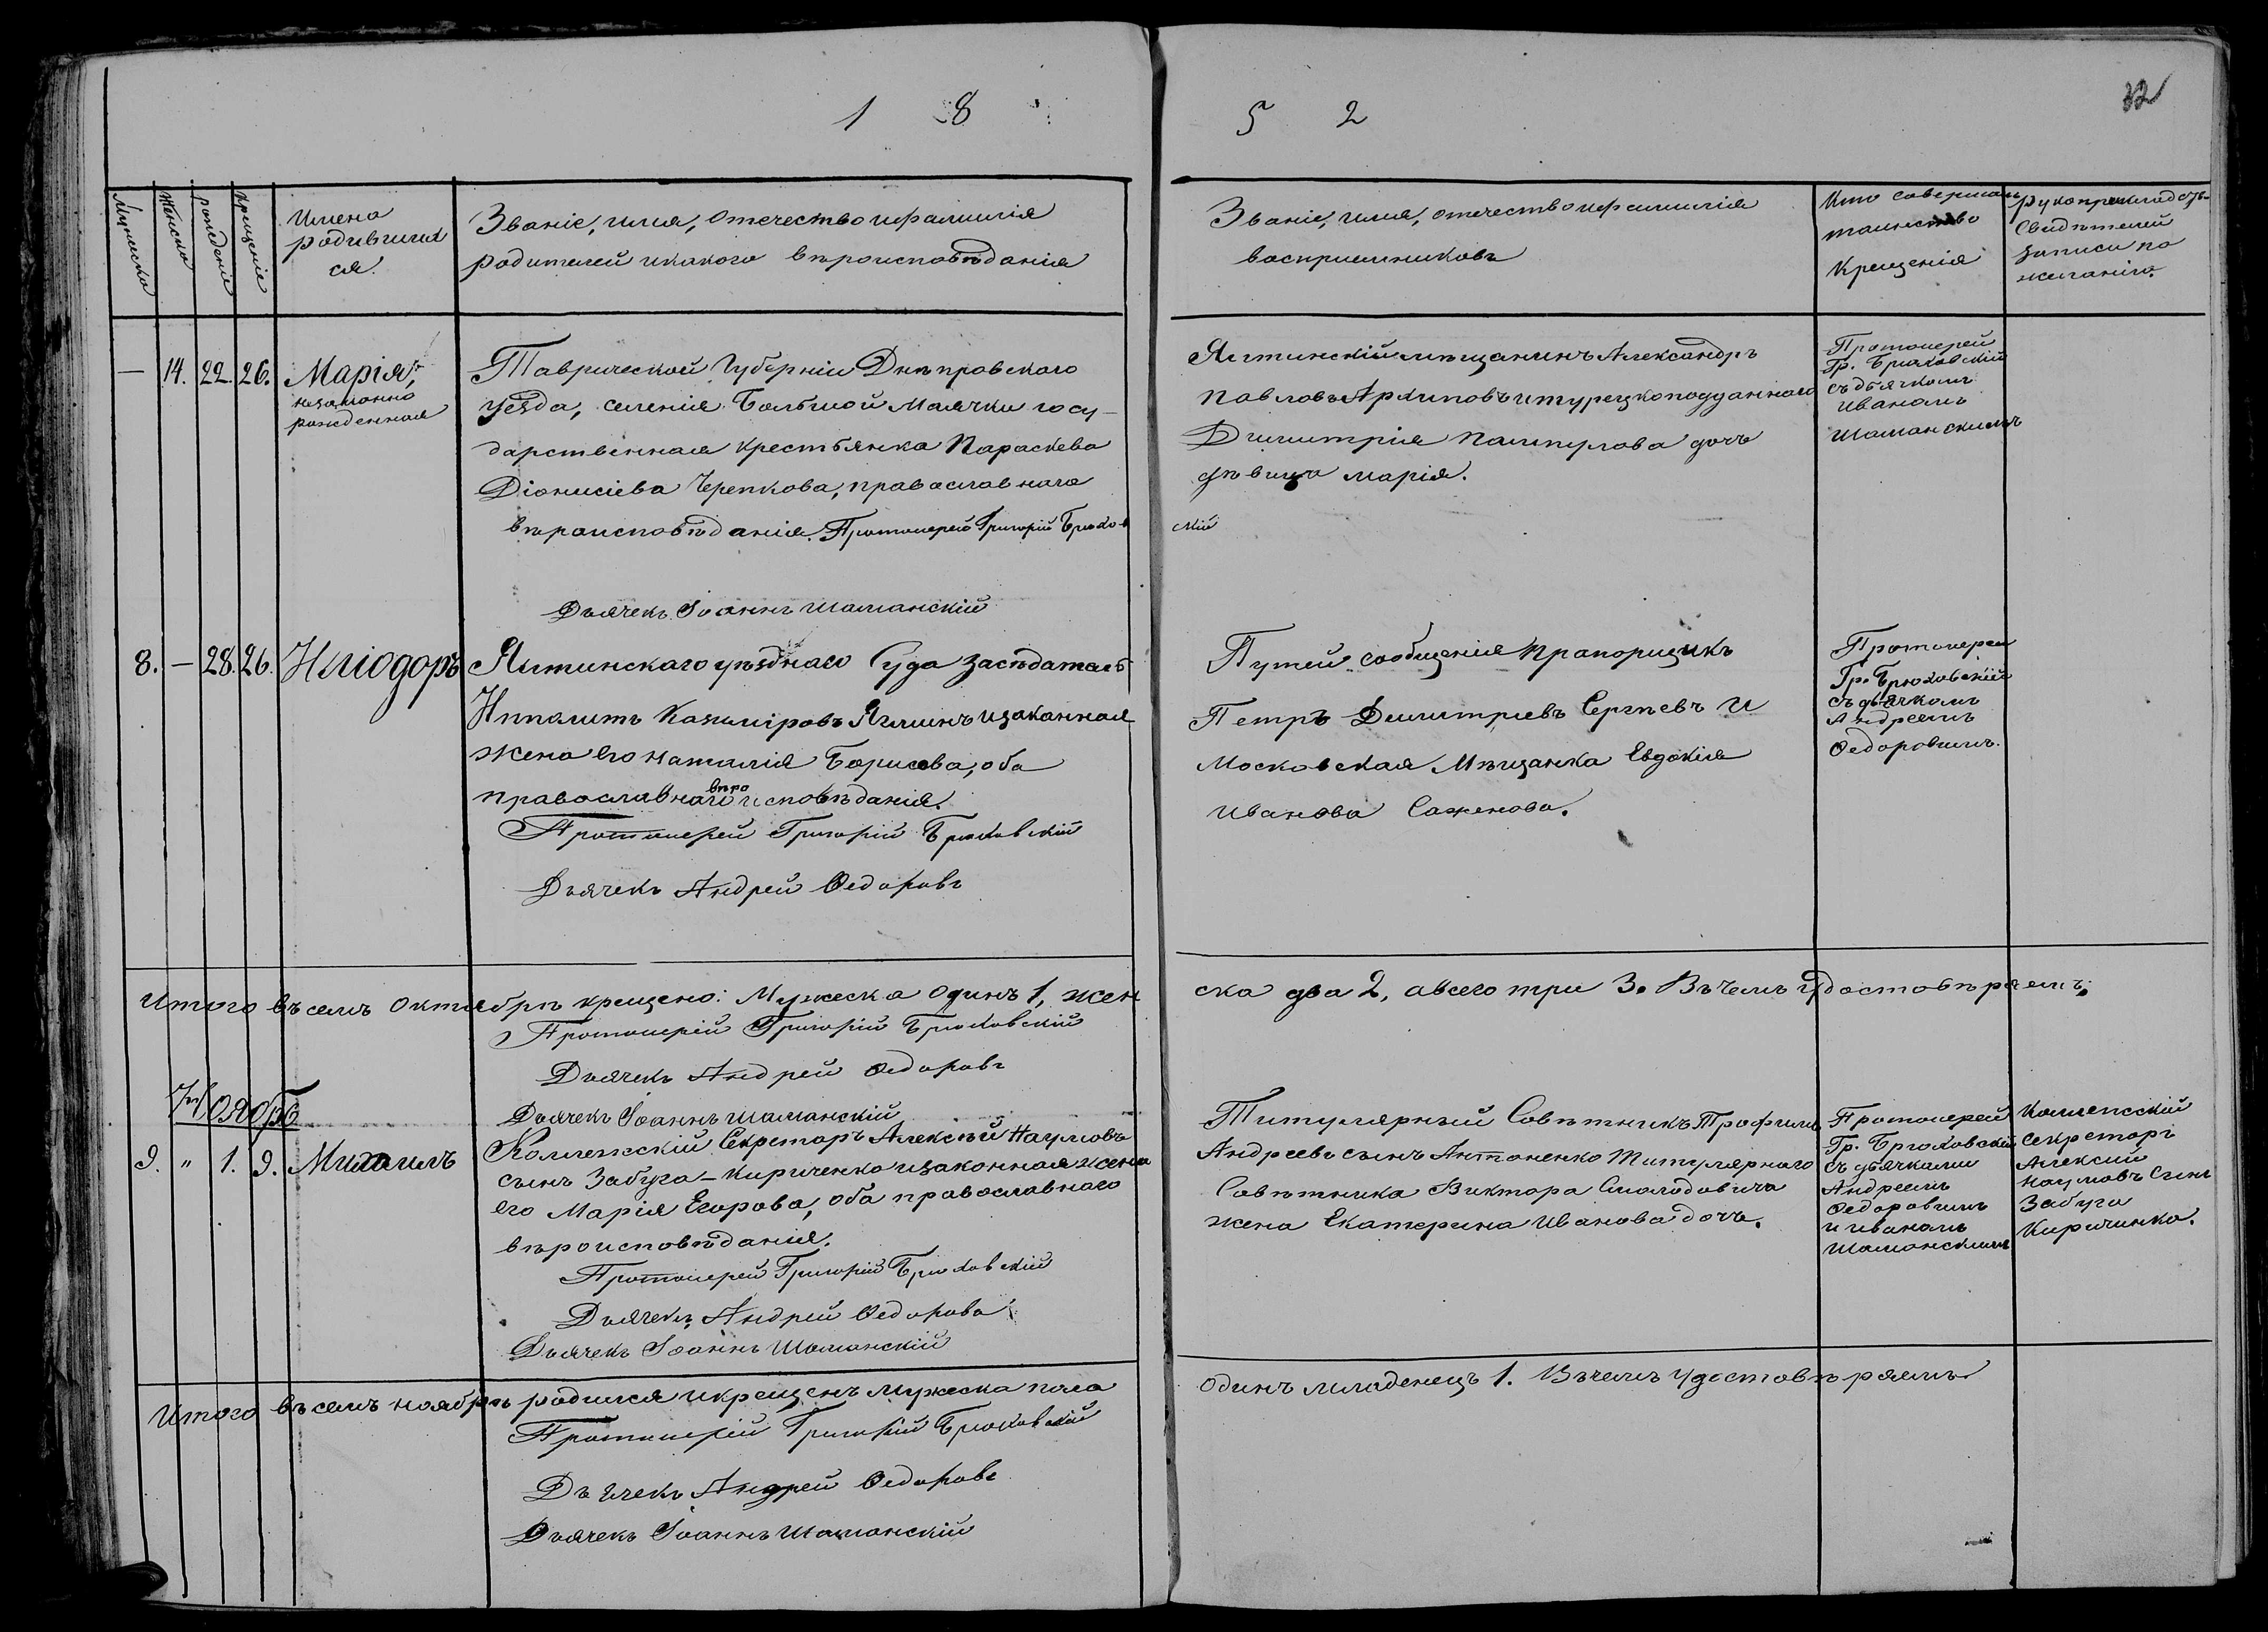 1 8 5 2
32
Мужеска
Женска
рожденіе
крещеніе
Имена
родивших
ся.
Званіе, имя, отечество и фамилія
родителей и какого вѣроисповѣданія
Званіе, имя, отечество и фамилія
восприемниковъ
Кто совершалъ
таинство
Крещенія
рукоприкладство
свидѣтелей
записи по
желанію.
— 14. 22. 26. Марія,
незаконно
рожденная
Таврической Губерніи Днѣпровского
уезда, селенія Большой Маячки госу-
дарственная крестьянка Параскева
Діонисіева Черепкова, православнаго
вѣроисповѣданія. Протоиерей Григорій Брюхов
скій
Дьячекъ Іоаннъ Шаманскій
Ялтинскій мѣщанинъ Александръ
Павловъ Архиповъ и турецкоподданнаго
Димитрія Пампулова дочь
дѣвица Марія.
Протоиерей
Гр. Брюховскій
съ дьячкомъ
Иваномъ
Шаманскимъ
8. — 28. 26. Иліодоръ
Ялтинскаго уѣзднаго Суда Засѣдатель
Ипполитъ Казиміровъ Яминъ и законная
жена его Наталія Борисова, оба
православнаго вѣроисповѣданія.
Протоиерей Григорій Брюховскій
Дьячекъ Андрей Ѳедоровъ
Путей сообщенія Прапорщикъ
Петръ Димитріевъ Сергѣевъ и
Московская Мѣщанка Евдокія
Иванова Саженова.
Протоиерей
Гр. Брюховскій
съ дьячкомъ
Андреемъ
Ѳедоровымъ.
Итого въ семъ Октябрѣ крещено: Мужеска одинъ 1, жен
ска два 2, а всего три 3. Въ чемъ удостовѣряемъ:
Протоиерей Григорій Брюховскій
Дьячекъ Андрей Ѳедоровъ
Дьячекъ Іоаннъ Шаманскій
Ноябрь
9. " 1. 9. Михаилъ
Коллежскій Секретарь Алексѣй Наумовъ
сынъ Забуга-Кириченко и законная жена
его Марія Егорова, оба православнаго
вѣроисповѣданія.
Протоиерей Григорій Брюховскій
Дьячекъ Андрей Ѳедоровъ
Дьячекъ Іоаннъ Шаманскій
Титулярный Совѣтникъ Трофимъ
Андреевъ сынъ Антоненко Титулярнаго
Совѣтника Виктора Смолодовича
жена Екатерина Иванова дочь.
Протоиерей
Гр. Брюховскій
съ дьячками
Андреемъ
Ѳедоровымъ
и Иваномъ
Шаманскимъ
Коллежскій
секретарь
Алексѣй
Наумовъ сынъ
Забуга
Кириченко.
Итого въ семъ ноябрѣ родился и крещенъ мужеска пола
одинъ младенецъ 1. Въ чемъ удостовѣряемъ
Протоиерей Григорій Брюховскій
Дьячекъ Андрей Ѳедоровъ
Дьячекъ Іоаннъ Шаманскій